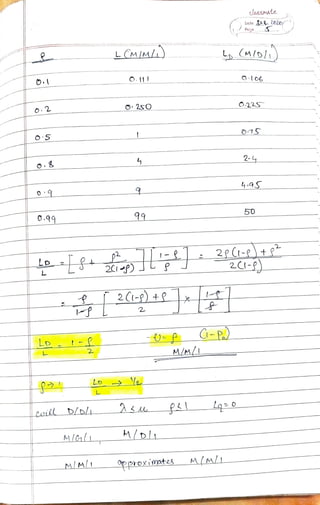 classmate
Date
Page 5
ρ L (M/M/1) L_D (M/D/1)
0.1 0.111 0.106
0.2 0.250 0.225
0.5 1 0.75
0.8 4 2.4
0.9 9 4.95
0.99 99 50
L_D/L = [ρ + ρ²/2(1-ρ)] [(1-ρ)/ρ] = (2ρ(1-ρ) + ρ²)/2(1-ρ)
= ρ/(1-ρ) [(2(1-ρ) + ρ)/2] × [(1-ρ)/ρ]
L_D/L = 1 - ρ/2 ρ (1-P₀)
M/M/1
ρ→1 L_D/L → 1/2
D/D/1 λ ≤ μ ρ ≤ 1 Lq = 0
M/G/1, M/D/1
M/M/1 approximates M/M/1